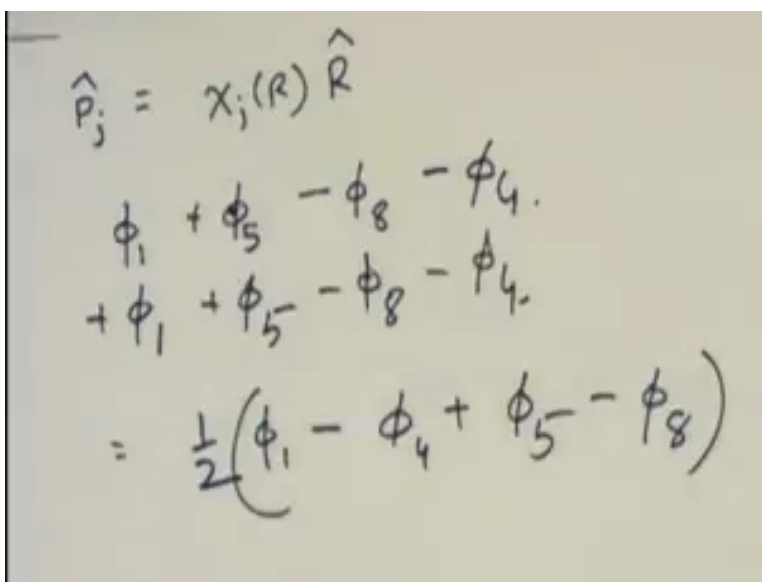 P̂ⱼ = χⱼ(R) R̂
ϕ₁ + ϕ₅ - ϕ₈ - ϕ₄.
+ ϕ₁ + ϕ₅ - ϕ₈ - ϕ₄.
= 1/2 (ϕ₁ - ϕ₄ + ϕ₅ - ϕ₈)